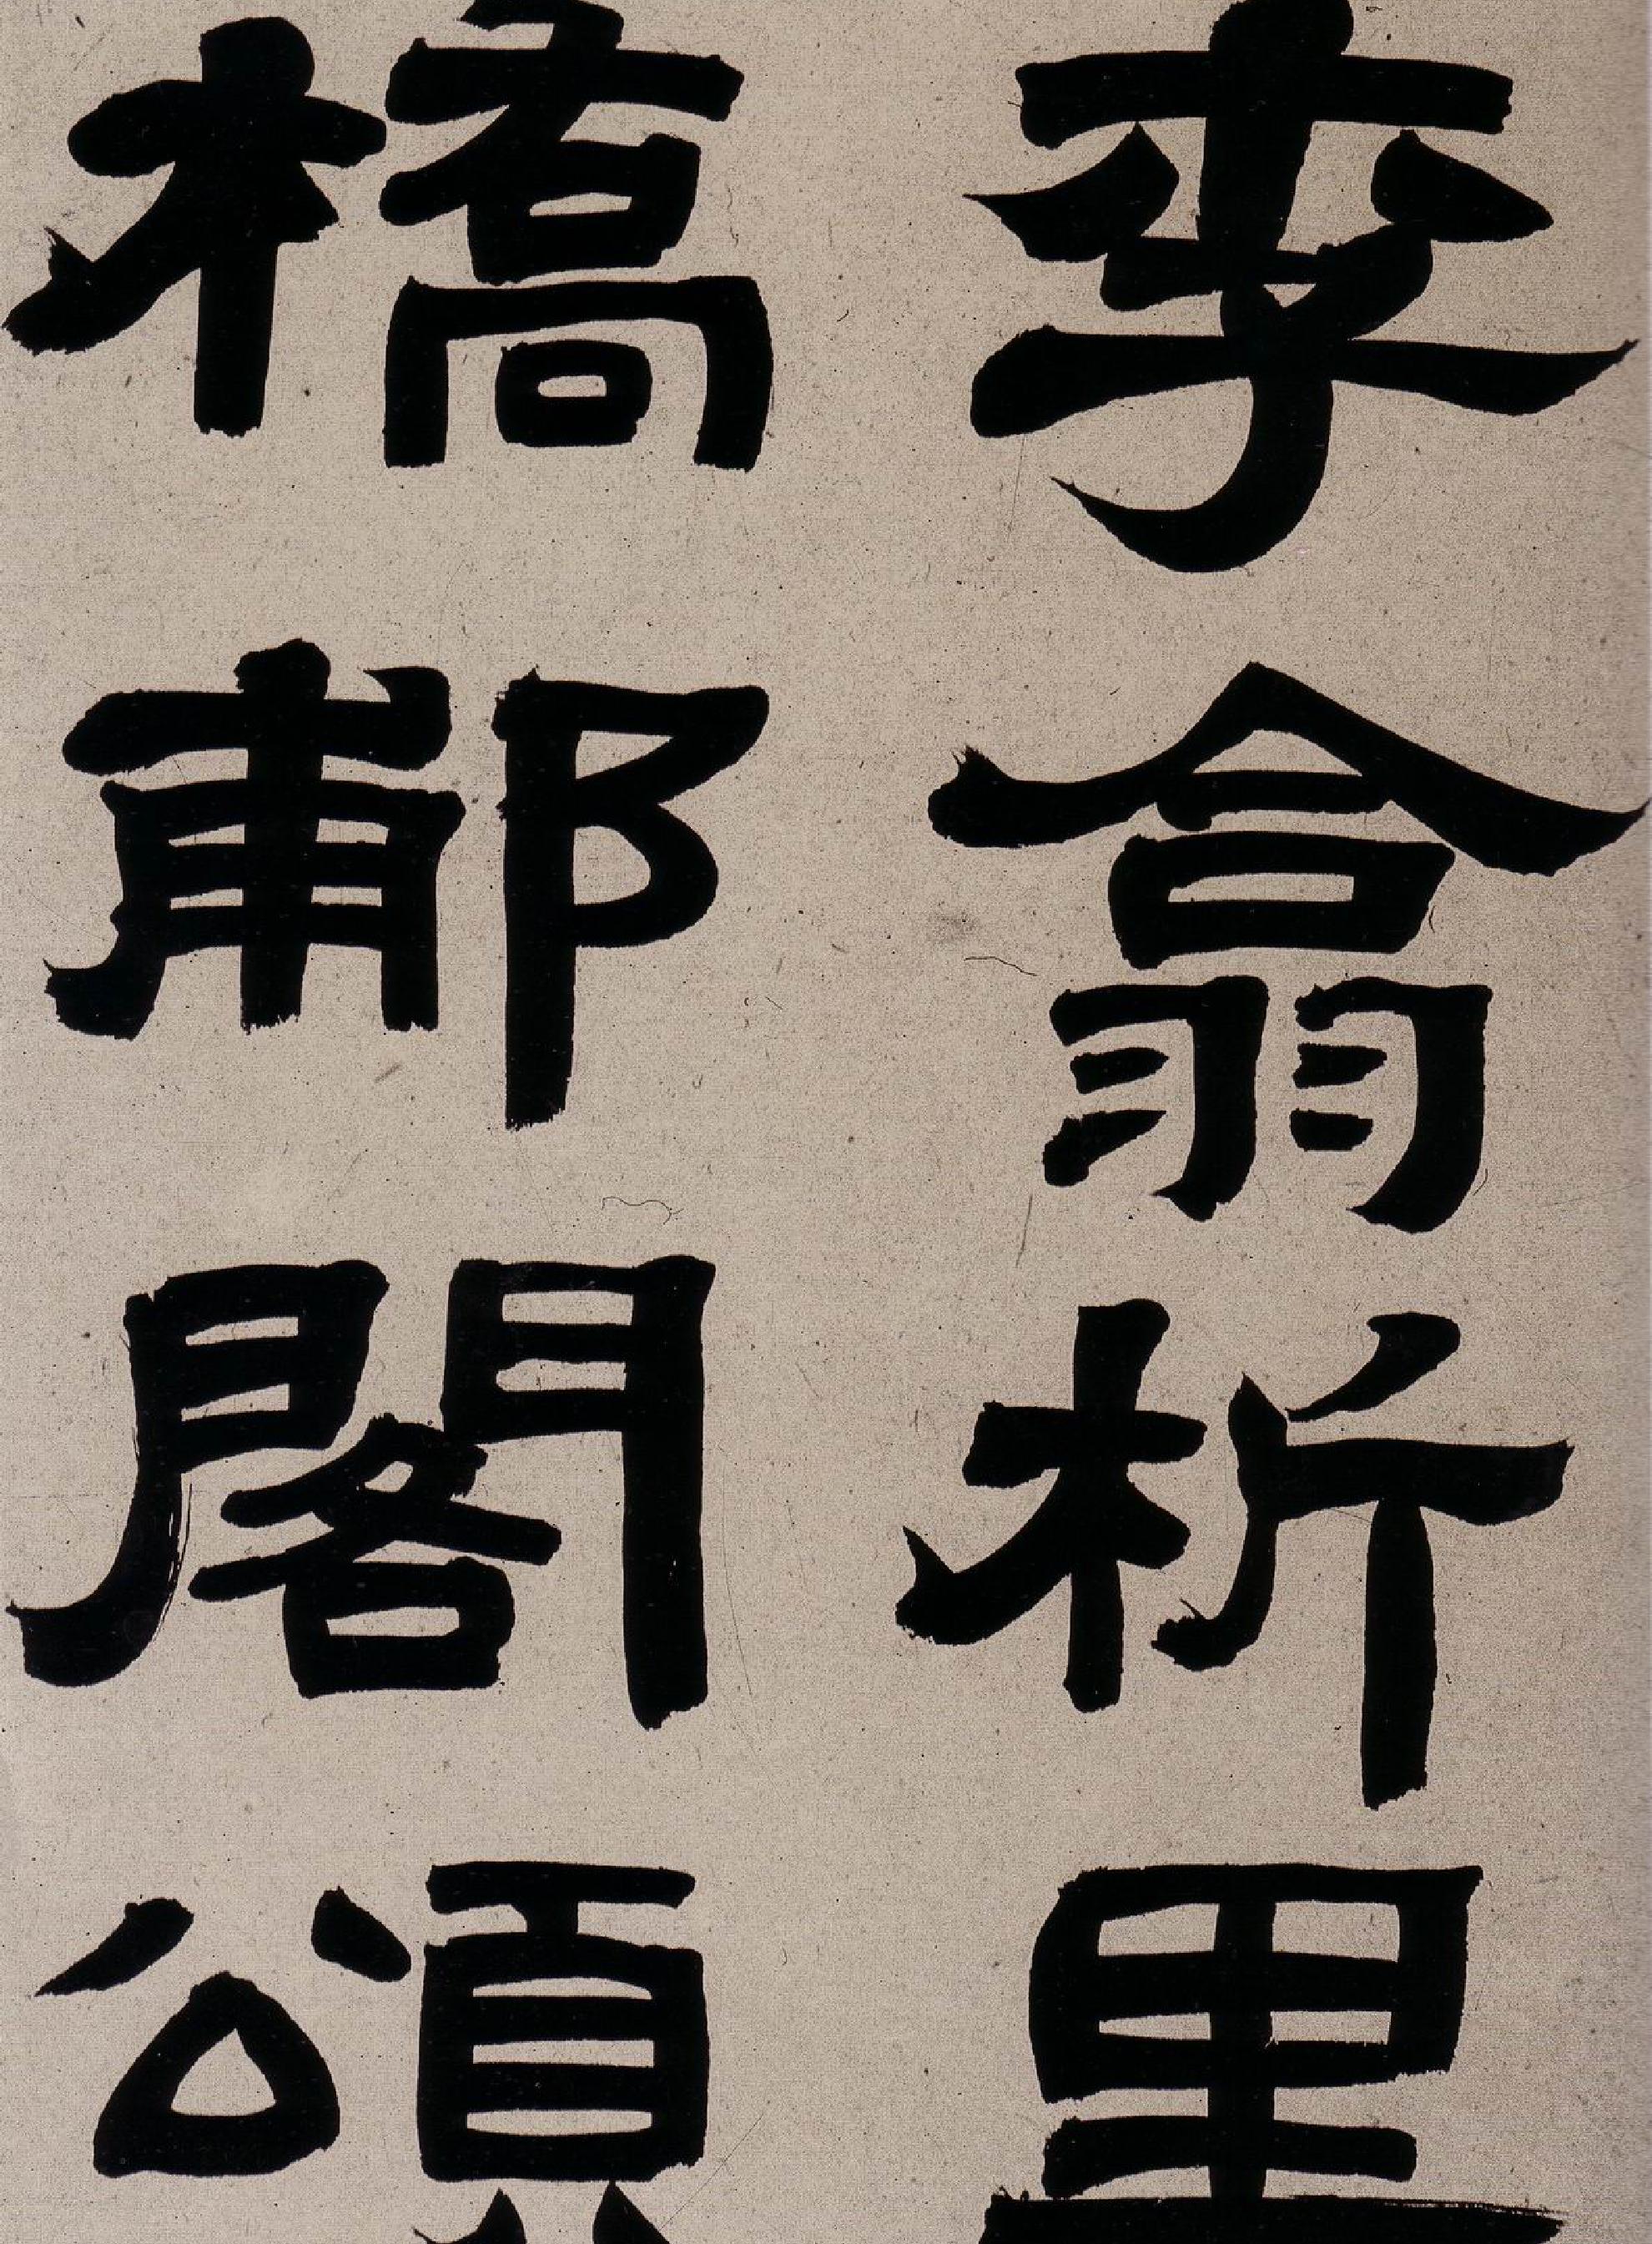 李翕析里
橋郙閣頌